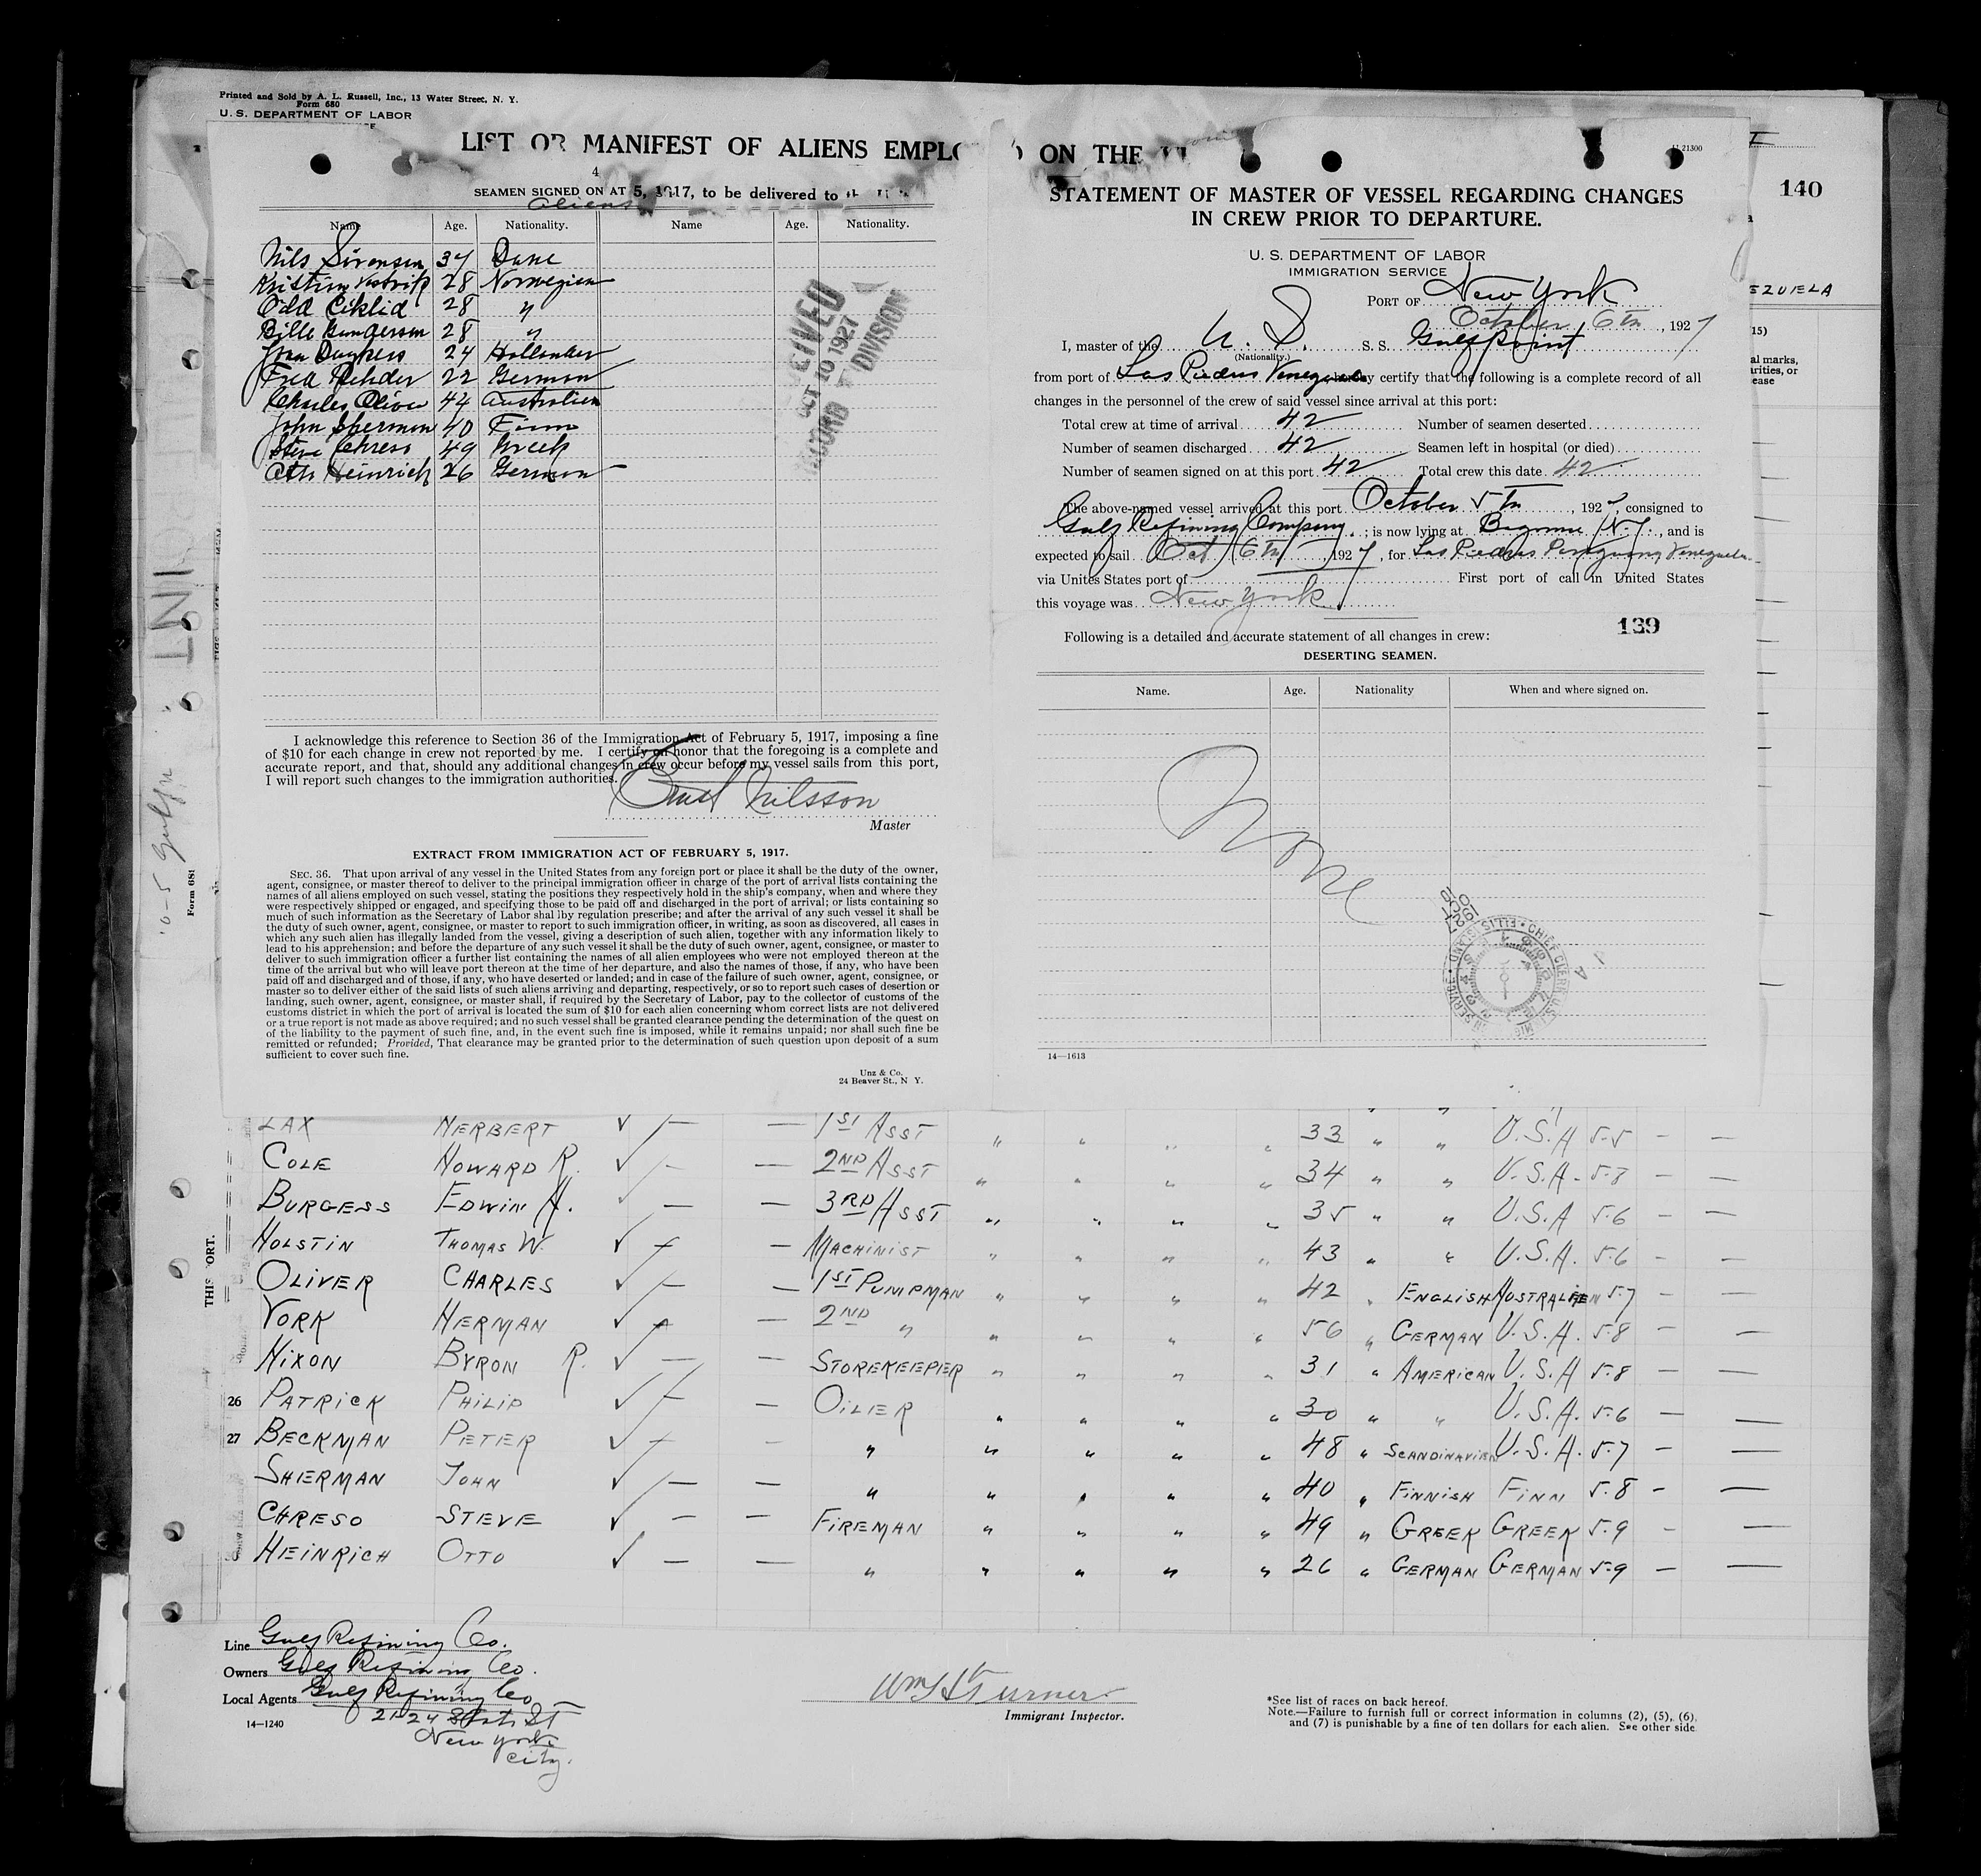 Printed and Sold by A. L. Russell, Inc., 13 Water Street, N. Y.
Form 680
U. S. DEPARTMENT OF LABOR
LIST OR MANIFEST OF ALIENS EMPLO
4
SEAMEN SIGNED ON AT 5, 1917, to be delivered to
Aliens
Name Age. Nationality. Name Age. Nationality.
Nils Sörensen 37 Dane
28 Norwegian
Odd 28 "
Bille Gundersen 28 "
24 Hollander
Fred Rehder 22 German
Charles Oliver 42 Australian
John Sherman 40 Finn
Steve Chreso 49 Greek
Otto Heinrich 26 German
OCT 10 1927
RECORD DIVISION
I acknowledge this reference to Section 36 of the Immigration Act of February 5, 1917, imposing a fine
of $10 for each change in crew not reported by me. I certify on honor that the foregoing is a complete and
accurate report, and that, should any additional changes in crew occur before my vessel sails from this port,
I will report such changes to the immigration authorities.
Nilsson
Master
EXTRACT FROM IMMIGRATION ACT OF FEBRUARY 5, 1917.
SEC. 36. That upon arrival of any vessel in the United States from any foreign port or place it shall be the duty of the owner,
agent, consignee, or master thereof to deliver to the principal immigration officer in charge of the port of arrival lists containing the
names of all aliens employed on such vessel, stating the positions they respectively hold in the ship's company, when and where they
were respectively shipped or engaged, and specifying those to be paid off and discharged in the port of arrival; or lists containing so
much of such information as the Secretary of Labor shal lby regulation prescribe; and after the arrival of any such vessel it shall be
the duty of such owner, agent, consignee, or master to report to such immigration officer, in writing, as soon as discovered, all cases in
which any such alien has illegally landed from the vessel, giving a description of such alien, together with any information likely to
lead to his apprehension; and before the departure of any such vessel it shall be the duty of such owner, agent, consignee, or master to
deliver to such immigration officer a further list containing the names of all alien employees who were not employed thereon at the
time of the arrival but who will leave port thereon at the time of her departure, and also the names of those, if any, who have been
paid off and discharged and of those, if any, who have deserted or landed; and in case of the failure of such owner, agent, consignee, or
master so to deliver either of the said lists of such aliens arriving and departing, respectively, or so to report such cases of desertion or
landing, such owner, agent, consignee, or master shall, if required by the Secretary of Labor, pay to the collector of customs of the
customs district in which the port of arrival is located the sum of $10 for each alien concerning whom correct lists are not delivered
or a true report is not made as above required; and no such vessel shall be granted clearance pending the determination of the quest on
of the liability to the payment of such fine, and, in the event such fine is imposed, while it remains unpaid; nor shall such fine be
remitted or refunded; Provided, That clearance may be granted prior to the determination of such question upon deposit of a sum
sufficient to cover such fine.
Unz & Co.
24 Beaver St., N Y.
ON THE
21300
STATEMENT OF MASTER OF VESSEL REGARDING CHANGES
IN CREW PRIOR TO DEPARTURE.
U. S. DEPARTMENT OF LABOR
IMMIGRATION SERVICE
PORT OF New York
October 6th, 1927
I, master of the U. S. S. S. Gulfpoint
(Nationality.)
from port of Las Piedras Venezuela hereby certify that the following is a complete record of all
changes in the personnel of the crew of said vessel since arrival at this port:
Total crew at time of arrival 42 Number of seamen deserted
Number of seamen discharged 42 Seamen left in hospital (or died)
Number of seamen signed on at this port 42 Total crew this date 42
The above-named vessel arrived at this port October 5th, 1927, consigned to
Gulf Refining Company.; is now lying at Bayonne N.J., and is
expected to sail Oct 6th, 1927, for Las Piedras Venezuela
via Unites States port of First port of call in United States
this voyage was New York
Following is a detailed and accurate statement of all changes in crew:
139
DESERTING SEAMEN.
Name. Age. Nationality When and where signed on.
None
14—1613
140
EZUELA
15)
al marks,
arities, or
ease
Form 681
THIS PORT.
LAX HERBERT ✓ — — 1ST ASST " " " " 33 " " U.S.A 5-5 — —
COLE HOWARD R. ✓ — — 2ND ASST " " " " 34 " " U.S.A. 5-8 — —
BURGESS EDWIN A. ✓ — — 3RD ASST " " " " 35 " " U.S.A 5-6 — —
HOLSTIN THOMAS W. ✓ — — MACHINIST " " " " 43 " " U.S.A. 5-6 — —
OLIVER CHARLES ✓ — — 1ST PUMPMAN " " " " 42 " ENGLISH AUSTRALIAN 5-7 — —
YORK HERMAN ✓ — — 2ND " " " " " 56 " GERMAN U.S.A. 5-8 — —
NIXON BYRON R. ✓ — — STOREKEEPER " " " " 31 " AMERICAN U.S.A 5-8 — —
26 PATRICK PHILIP ✓ — — OILER " " " " 30 " " U.S.A. 5-6 — —
27 BECKMAN PETER ✓ — — " " " " " 48 " SCANDINAVIEN U.S.A. 5-7 — —
SHERMAN JOHN ✓ — — " " " " " 40 " FINNISH FINN 5-8 — —
CHRESO STEVE ✓ — — FIREMAN " " " " 49 " GREEK GREEK 5-9 — —
HEINRICH OTTO ✓ — — " " " " " 26 " GERMAN GERMAN 5-9 — —
Line Gulf Refining Co.
Owners Gulf Refining Co.
Local Agents Gulf Refining Co
21-24 State St
New York
City.
14—1240
Wm Turner
Immigrant Inspector.
*See list of races on back hereof.
Note.—Failure to furnish full or correct information in columns (2), (5), (6),
and (7) is punishable by a fine of ten dollars for each alien. See other side